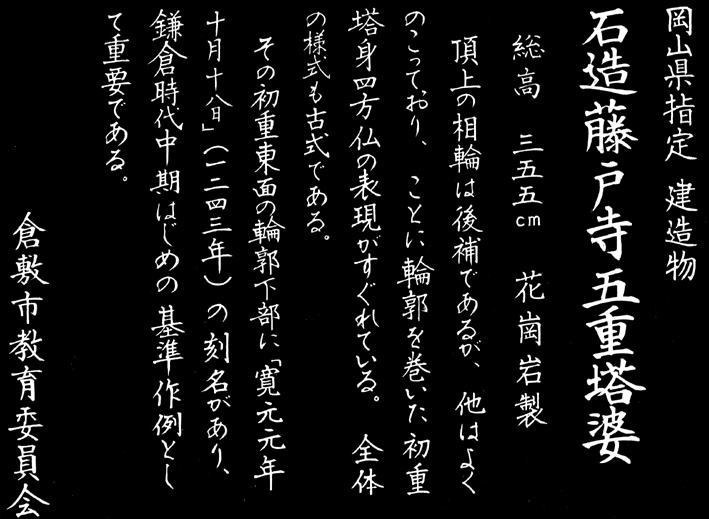 岡山県指定 建造物
石造藤戸寺五重塔婆
総高 三五五cm 花崗岩製
頂上の相輪は後補であるが、他はよく
のこっており、ことに輪郭を巻いた初重
塔身四方仏の表現がすぐれている。全体
の様式も古式である。
その初重東面の輪郭下部に「寛元元年
十月十八日」(一二四三年)の刻名があり、
鎌倉時代中期はじめの基準作例とし
て重要である。
倉敷市教育委員会